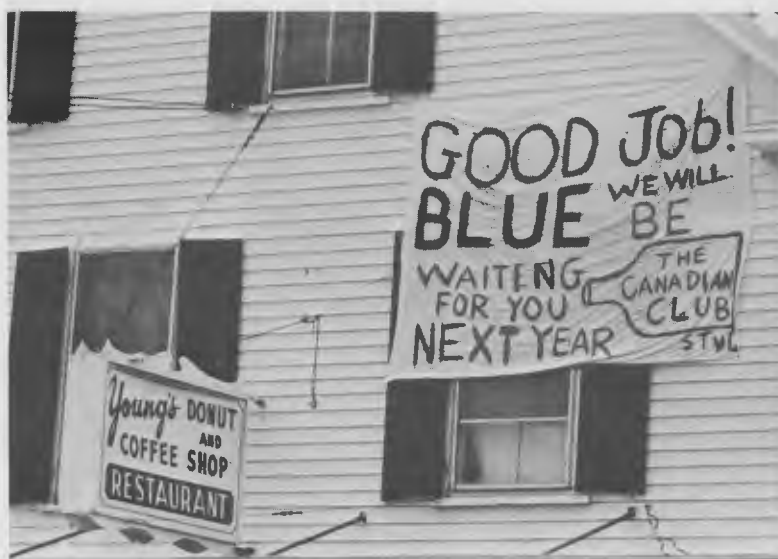 GOOD Job!
BLUE WE WILL
BE
WAITENG
FOR YOU
NEXT YEAR
THE
CANADIAN
CLUB
Young's DONUT
AND
COFFEE SHOP
RESTAURANT